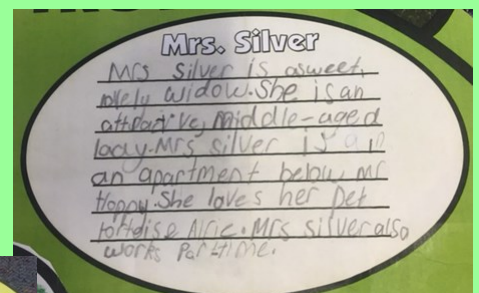 Mrs. Silver
Mrs Silver is a sweet,
lovely widow. She is an
attractive, middle-aged
lady. Mrs silver is
an apartment below Mr
Hoppy. She loves her pet
tortoise Alfie. Mrs silver also
works Part time.